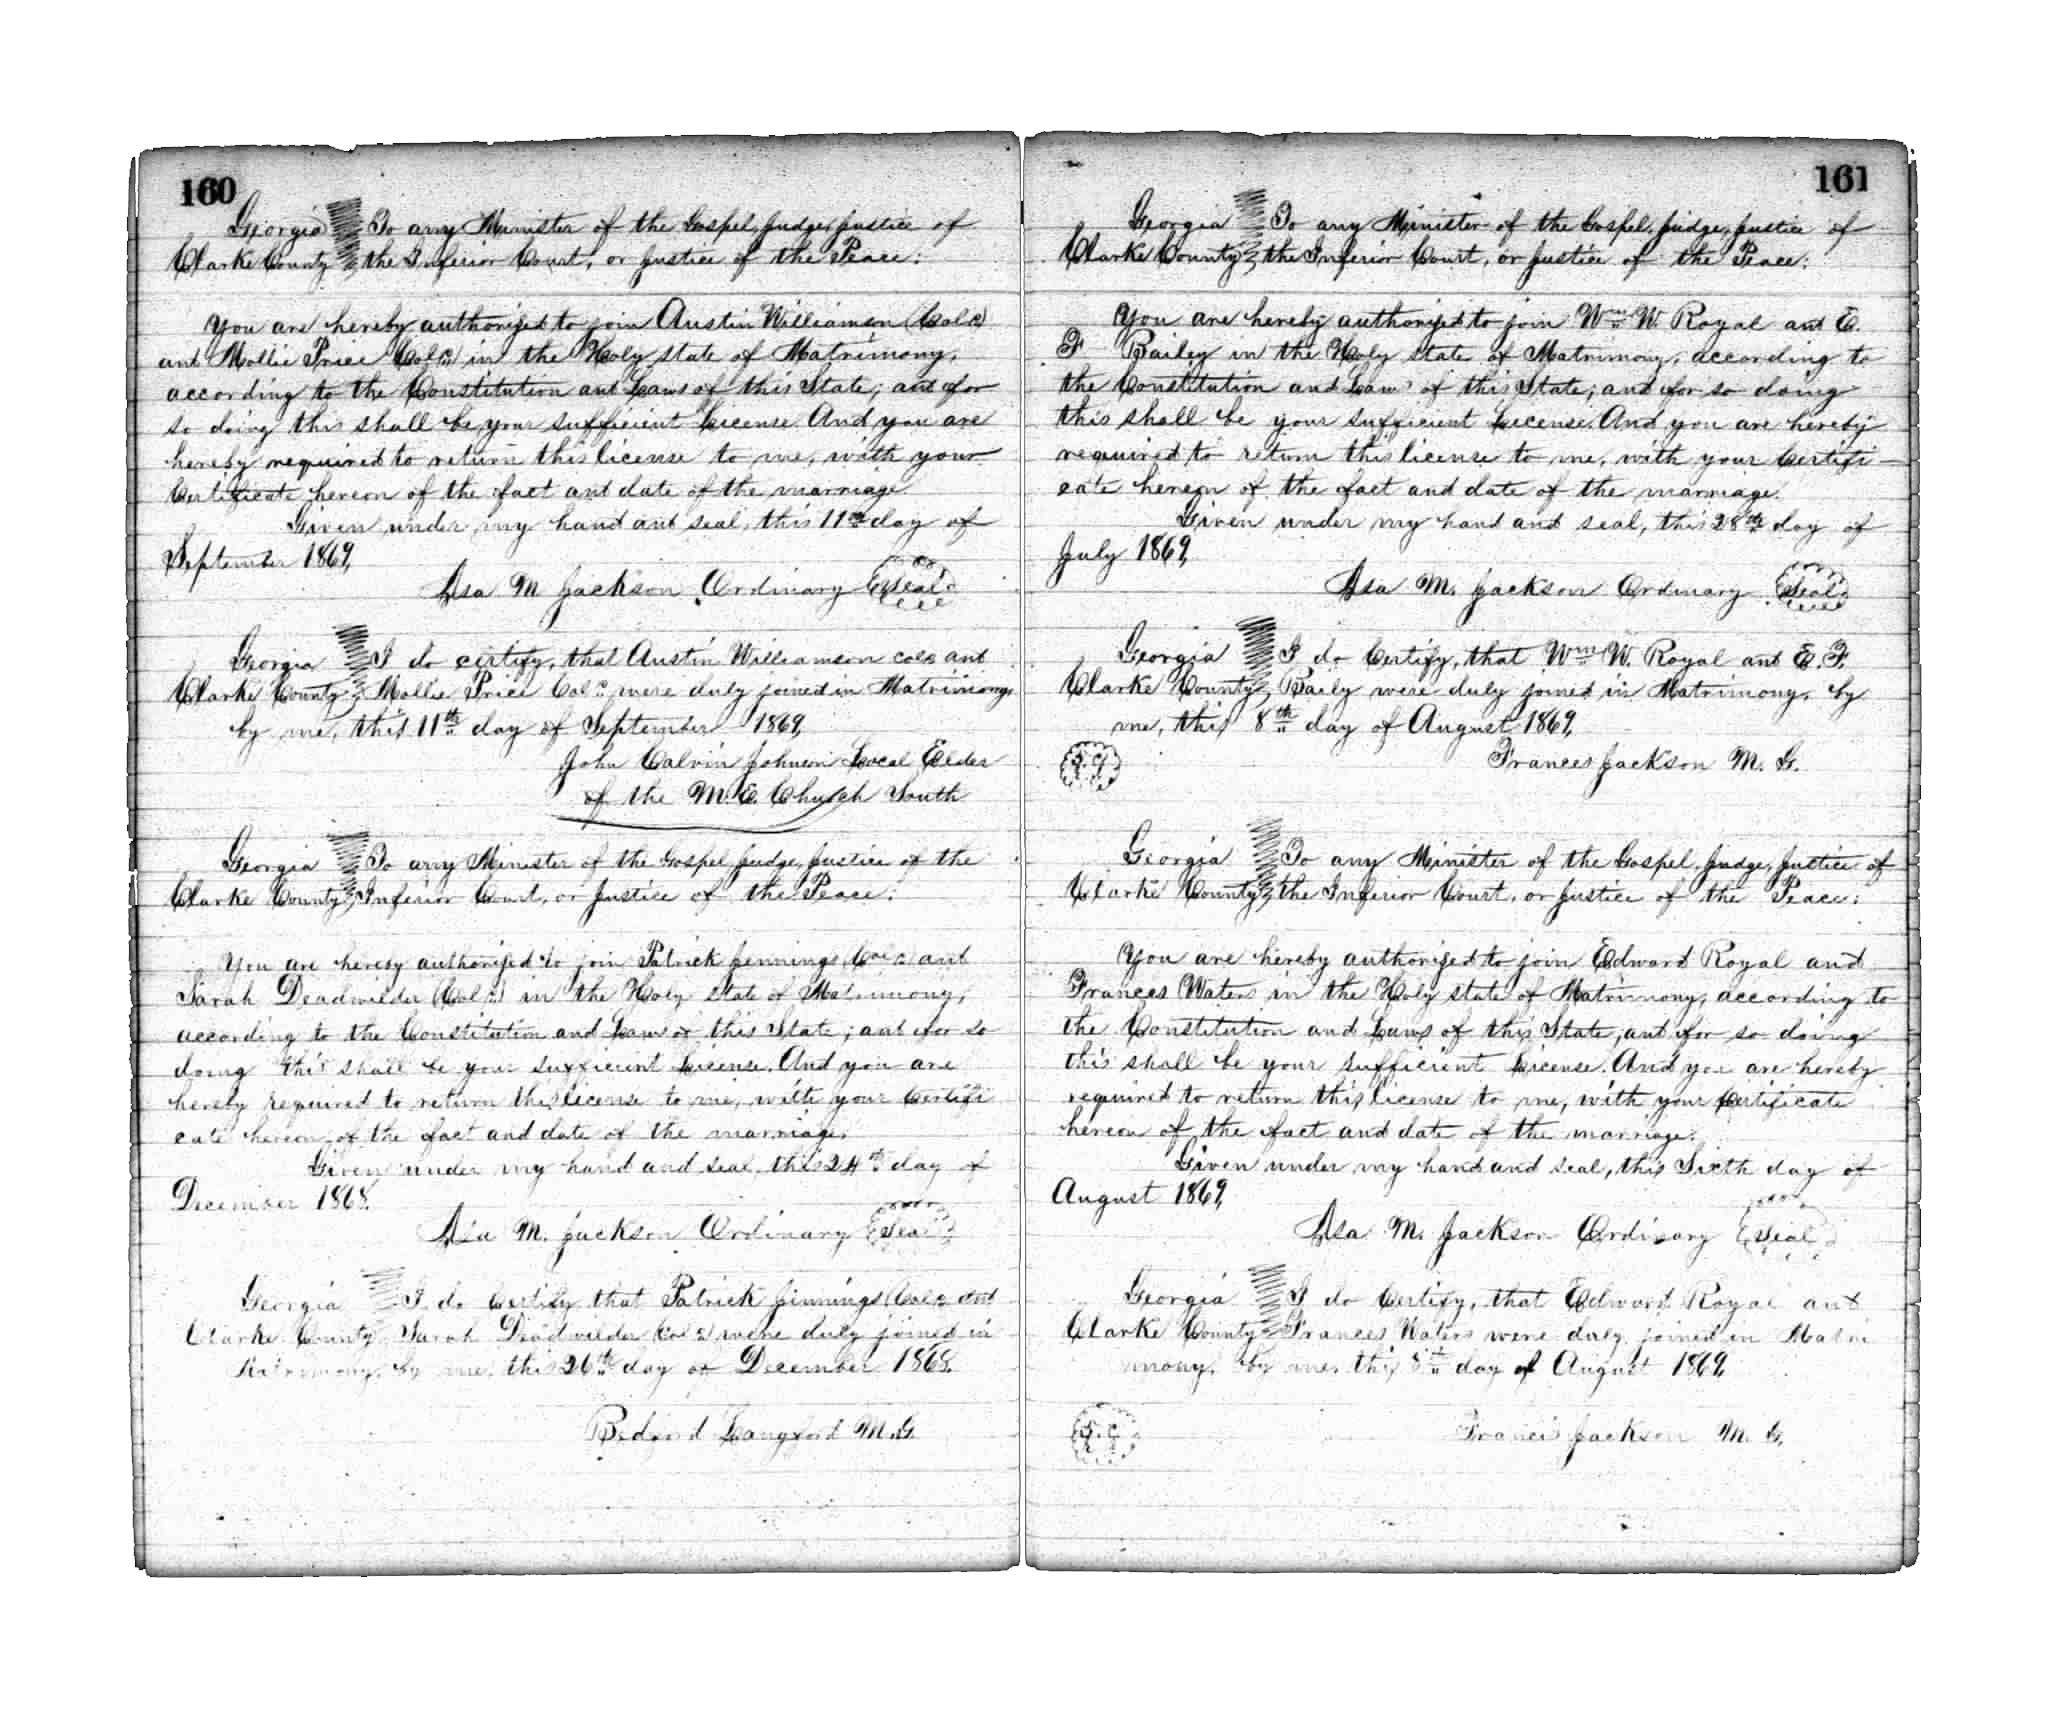 160
Georgia To any Minister of the Gospel, Judge, Justice of
Clarke County the Inferior Court, or Justice of the Peace:
You are hereby authorized to join Austin Williamson (Col.d)
and Mollie Price (Col.d) in the Holy state of Matrimony,
according to the Constitution and Laws of this State; and for
so doing this shall be your sufficient License. And you are
hereby required to return this license to me, with your
Certificate hereon of the fact and date of the marriage.
Given under my hand and seal, this 11th day of
September 1869,
Asa M Jackson Ordinary Seal
Georgia I do certify, that Austin Williamson Col.d and
Clarke County Mollie Price Col.d were duly joined in Matrimony
by me, this 11th day of September 1869,
John Calvin Johnson Local Elder
of the M. E. Church South
Georgia To any Minister of the Gospel Judge, Justice of the
Clarke County Inferior Court, or Justice of the Peace:
You are hereby authorized to join Patrick Jennings (Col.d) and
Sarah Deadwilder (Col.d) in the Holy state of Matrimony,
according to the Constitution and Laws of this State; and for so
doing this shall be your sufficient License. And you are
hereby required to return this license to me, with your Certifi
cate hereon of the fact and date of the marriage.
Given under my hand and seal, this 24th day of
December 1868.
Asa M. Jackson Ordinary Seal
Georgia I do Certify that Patrick Jinnings (Col.d) and
Clarke County Sarah Deadwilder (Col.d) were duly joined in
Matrimony, by me, this 26th day of December 1868.
Bedford Langford M.G.
161
Georgia To any Minister of the Gospel, Judge, Justice of
Clarke County the Inferior Court, or Justice of the Peace:
You are hereby authorized to join Wm W. Royal and E.
F Bailey in the Holy state of Matrimony, according to
the Constitution and Laws of this State; and for so doing
this shall be your sufficient License. And you are hereby
required to return this license to me, with your Certifi-
cate hereon of the fact and date of the marriage.
Given under my hand and seal, this 28th day of
July 1869,
Asa M. Jackson Ordinary Seal
Georgia I do Certify, that Wm W. Royal and E. F.
Clarke County Baily were duly joined in Matrimony, by
me, this 8th day of August 1869,
Frances Jackson M. G.
Georgia To any Minister of the Gospel, Judge, Justice of
Clarke County the Inferior Court, or Justice of the Peace:
You are hereby authorized to join Edward Royal and
Frances Waters in the Holy state of Matrimony, according to
the Constitution and Laws of this State, and for so doing
this shall be your sufficient License. And you are hereby
required to return this license to me, with your Certificate
hereon of the fact and date of the marriage.
Given under my hand and seal, this Sixth day of
August 1869,
Asa M. Jackson Ordinary Seal
Georgia I do Certify, that Edward Royal and
Clarke County Frances Waters were duly joined in Matri
mony, by me, this 8th day of August 1869,
Francis Jackson M. G.